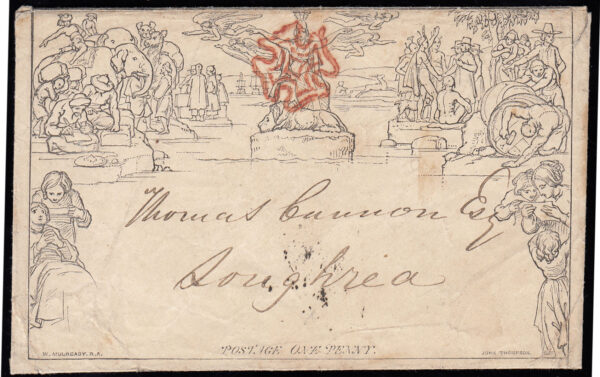 Thomas Cannon Esq
Loughrea
POSTAGE ONE PENNY.
W. MULREADY. R.A.
JOHN THOMPSON.